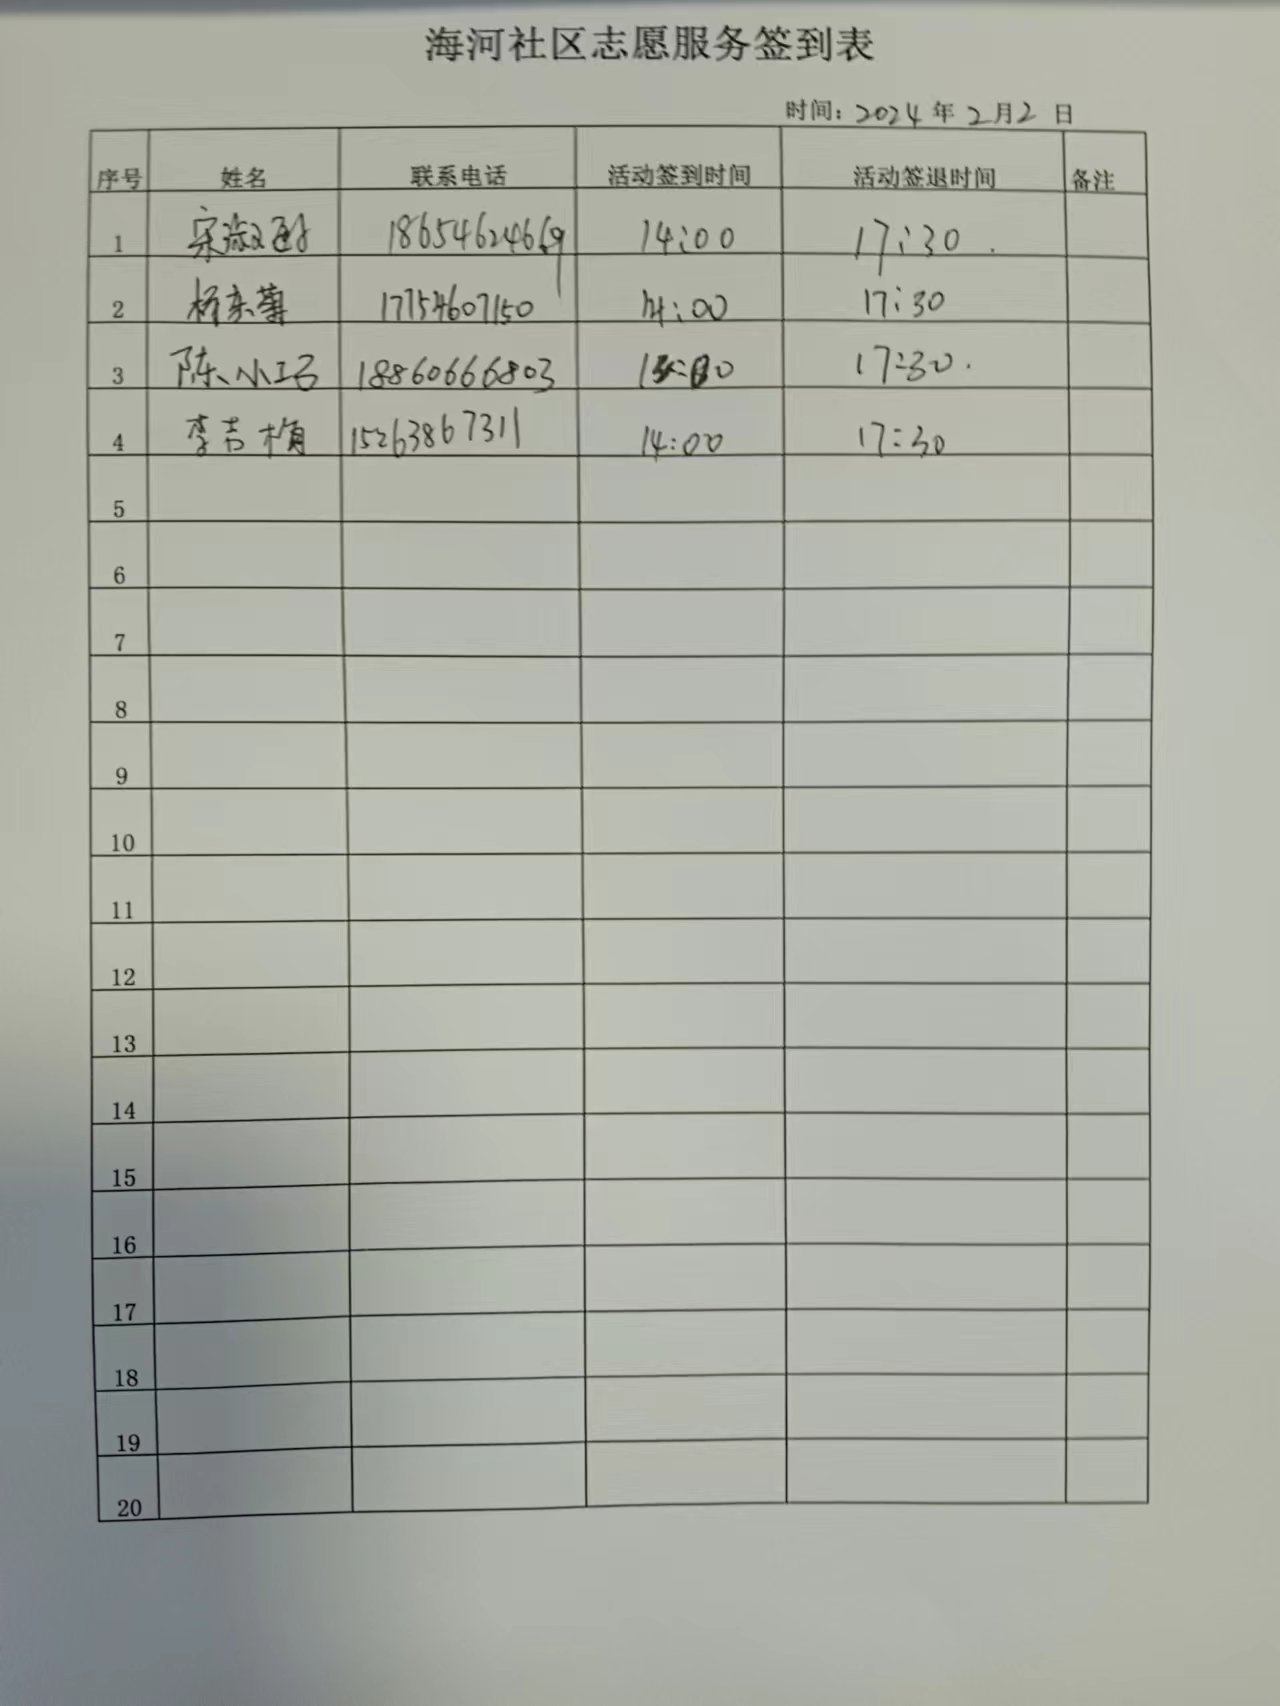 海河社区志愿服务签到表
时间：2024年2月2日
序号 姓名 联系电话 活动签到时间 活动签退时间 备注
1 宋淑 18654624669 14:00 17:30
2 杨东菊 17754607150 14:00 17:30
3 陈小巧 18860666803 17:30
4 李吉桢 15263867311 14:00 17:30
5
6
7
8
9
10
11
12
13
14
15
16
17
18
19
20